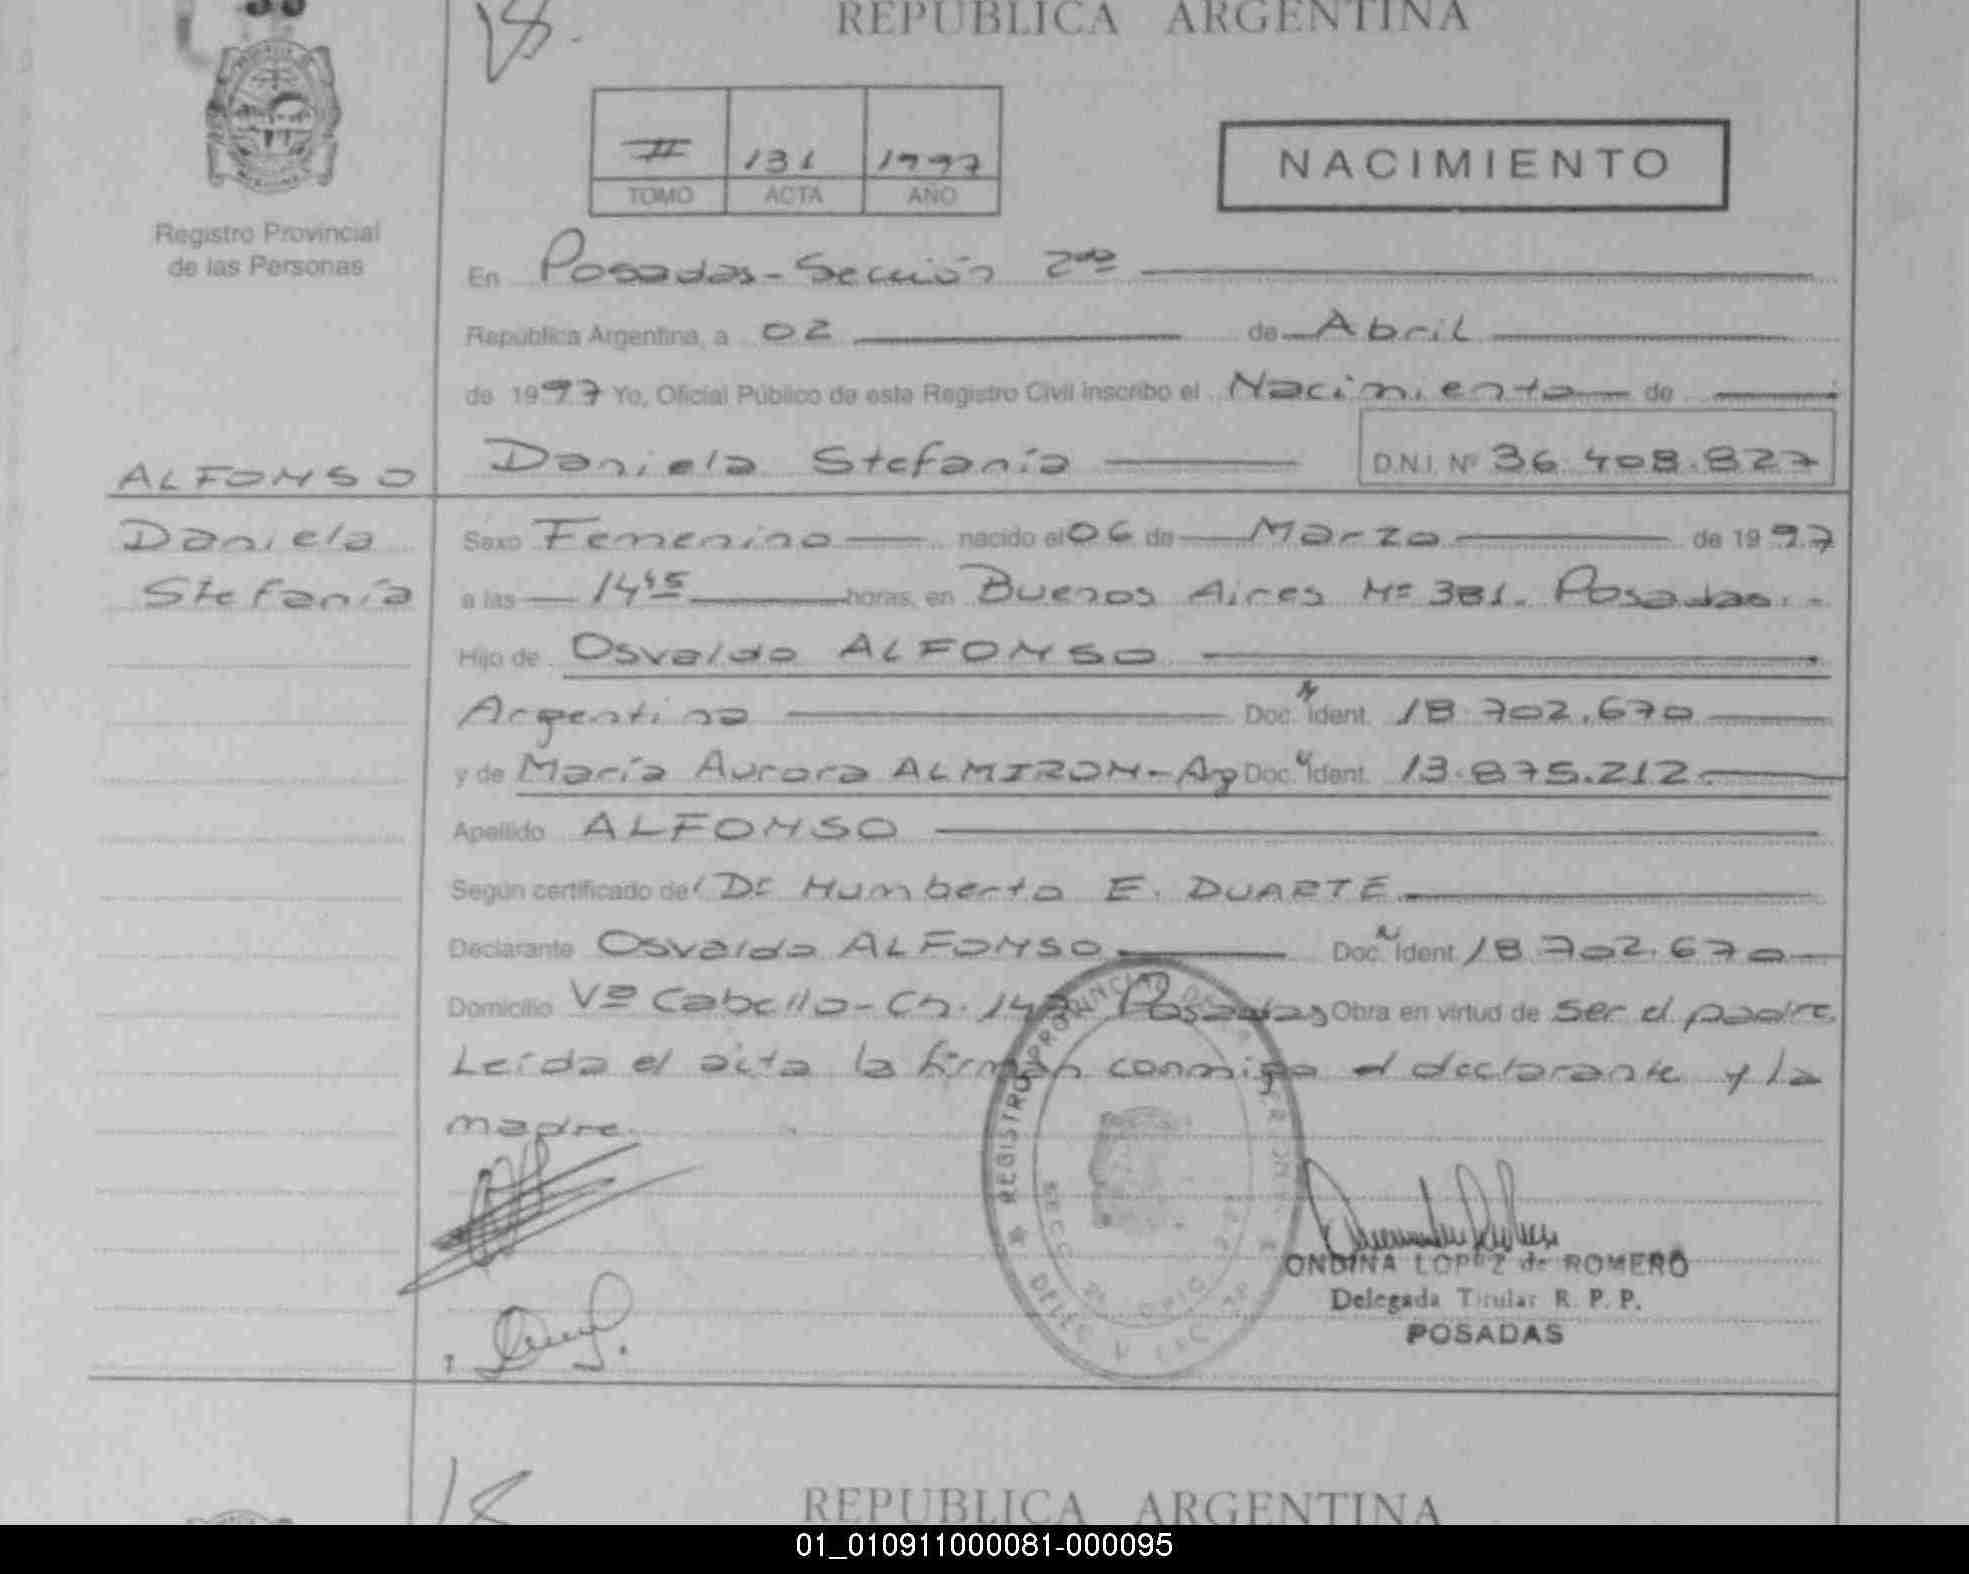 REPUBLICA ARGENTINA
II 131 1997
TOMO ACTA AÑO
NACIMIENTO
Registro Provincial
de las Personas
En Posadas - Sección 2da
República Argentina, a 02 de Abril
de 1997 Yo, Oficial Público de este Registro Civil inscribo el Nacimiento de
ALFONSO
Daniela Stefanía D.N.I. Nº 36.408.827
Daniela
Stefanía
Sexo Femenino nacido el 06 de Marzo de 1997
a las 14 45 horas, en Buenos Aires Nº 381. Posadas.-
Hijo de Osvaldo ALFONSO
Argentino Doc. N Ident. 18.702.670
y de María Aurora ALMIRON - Arg Doc. N Ident. 13.875.212.
Apellido ALFONSO
Según certificado del Dr Humberto E. DUARTE.
Declarante Osvaldo ALFONSO Doc. N Ident. 18.702.670
Domicilio Vª Cabello - Ch. Posadas Obra en virtud de ser el padre.
Leída el acta la firman conmigo el declarante y la
madre.
REGISTRO PROVINCIAL DE
ONDINA LOPEZ de ROMERO
Delegada Titular R. P. P.
POSADAS
18
REPUBLICA ARGENTINA
01_010911000081-000095